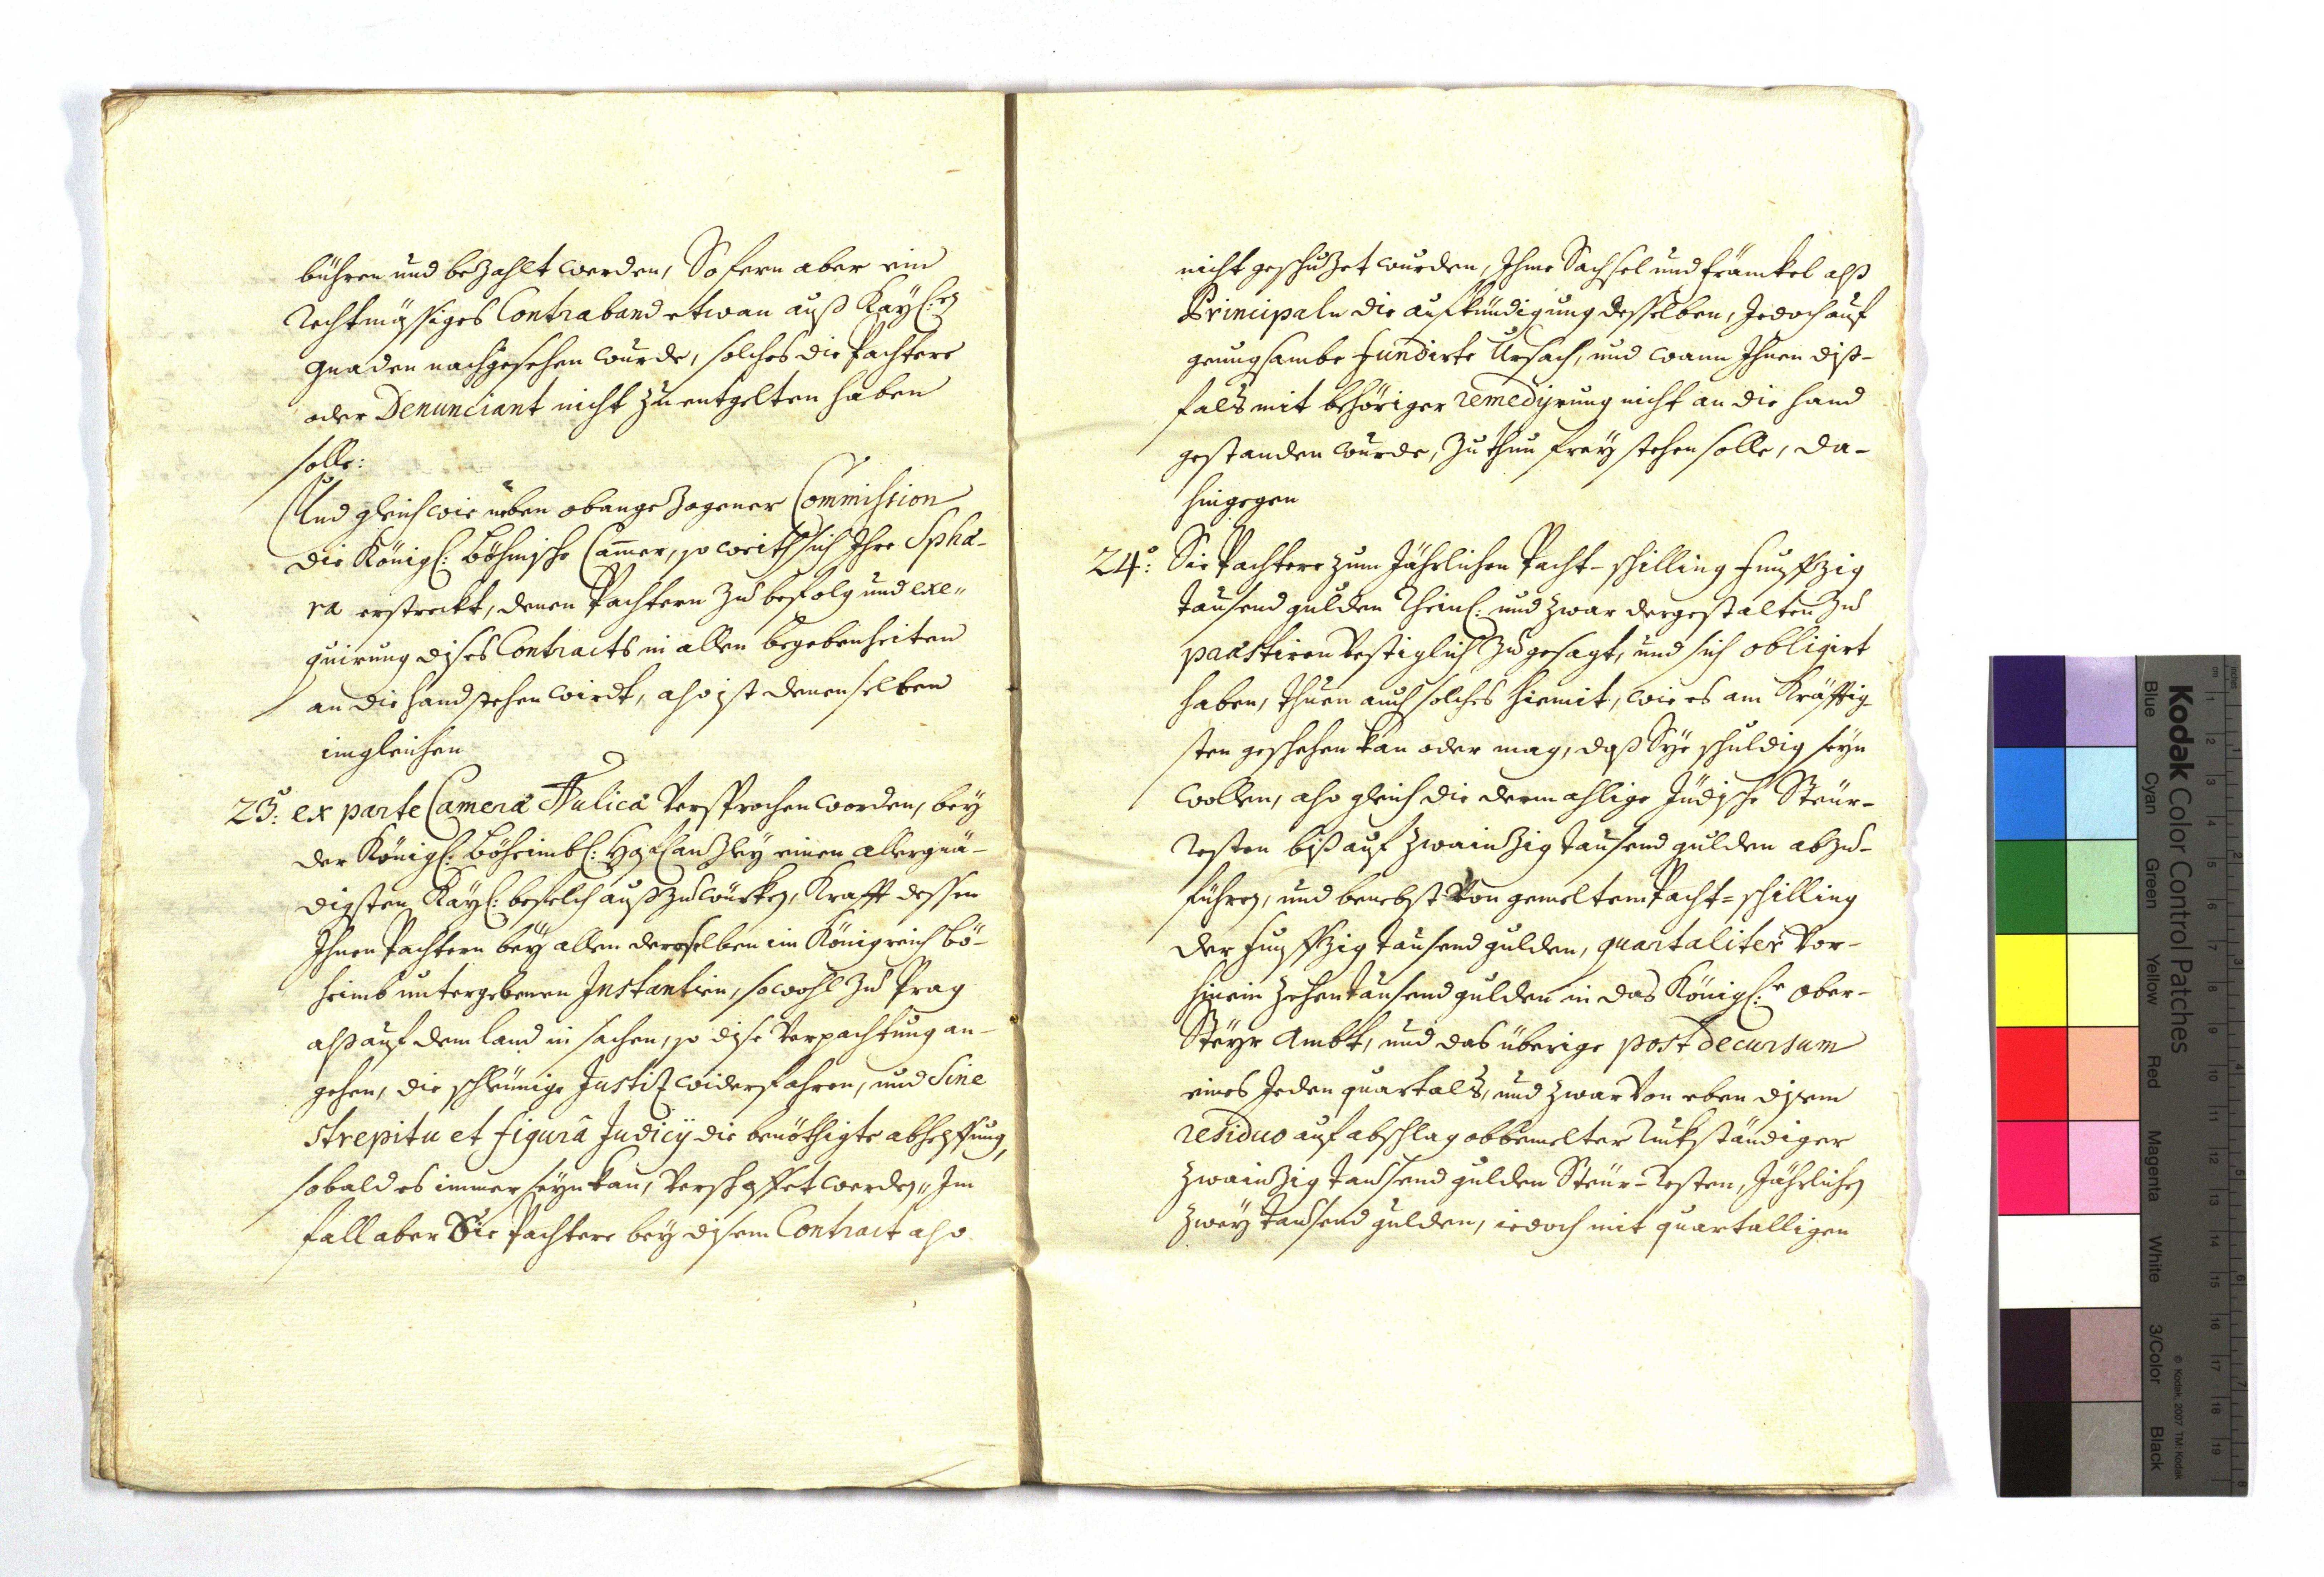 bühren und bezahlt werden, Sofern aber ein
Rechtmässiges Contraband etwan auß Kayl:en
gnaden nachgesehen wurde, solches die Pachtere
oder Denunciant nicht zu entgelten haben
solle:
Und gleich wie neben obangezogener Commission
die Königl: Böhmische Cammer, so weith sich Ihre Sphæ-
ra erstreckt, denen Pachtern zu befolg und exe„
quirung dises Contracts in allen begebenheiten
an die hand stehen wirdt, also ist denenselben
imgleichen
23º: ex parte Cameræ Aulicæ versprochen worden, bey
der Königl: Böheimbl: Hof Canzley einen allergnä-
digsten Kayl: befelch außzuwürken, Krafft dessen
Ihnen Pachtern bey allen deroselben im Königreich Bö-
heimb untergebenen Instantien, sowohl zu Prag
alß auf dem land in sachen, so dise Verpachtung an-
gehen, die schleunige Justiz widerfahren, und Sine
strepitu et figurâ Judicij die benöthigte abhelffung,
sobald es immer seyn kan, verschaffet werden„ Im
fall aber Sie Pachtere bey disem Contract also
nicht geschuzet wurden, Ihme Sachsel und Fränckel alß
Principaln die aufkündigung desselben, Jedoch auf
genugsambe fundirte Ursach, und wann Ihnen diß-
fals mit behöriger remedijrung nicht an die hand
gestanden wurde, zu thun frey stehen solle, da-
hingegen
24º: Sie Pachtere zum Jährlichen Pacht-schilling funffzig
tausend gulden Rheinl: und zwar dergestalten zu
præstiren Vestiglich zugesagt, und sich obligirt
haben, thuen auch solches hiemit, wie es am Kräfftig-
sten geschehen kan oder mag, daß Sye schuldig seyn
wollen, also gleich die dermahlige Jüdische Steur-
Resten biß auf zwainzig tausend gulden abzu-
führen, und benebst Von gemeltem Pacht-schilling
der funffzig tausend gulden, quartaliter Vor-
hinein zehentausend gulden in das Königl:e Ober-
Steyr Ambt, und das überige post decursum
eines Jeden quartals, und zwar Von eben disem
residuo auf abschlag obbemelter Rukständiger
zwainzig tausend gulden Steur-Resten, Jährlichen
zwey tausend gulden, iedoch mit quartalligen
Kodak Color Control Patches
Blue Cyan Green Yellow Red Magenta White 3/Color Black
© Kodak, 2007 TM: Kodak